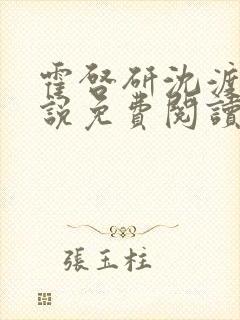 霍啓研沈渡
說免費閱讀
張玉柱